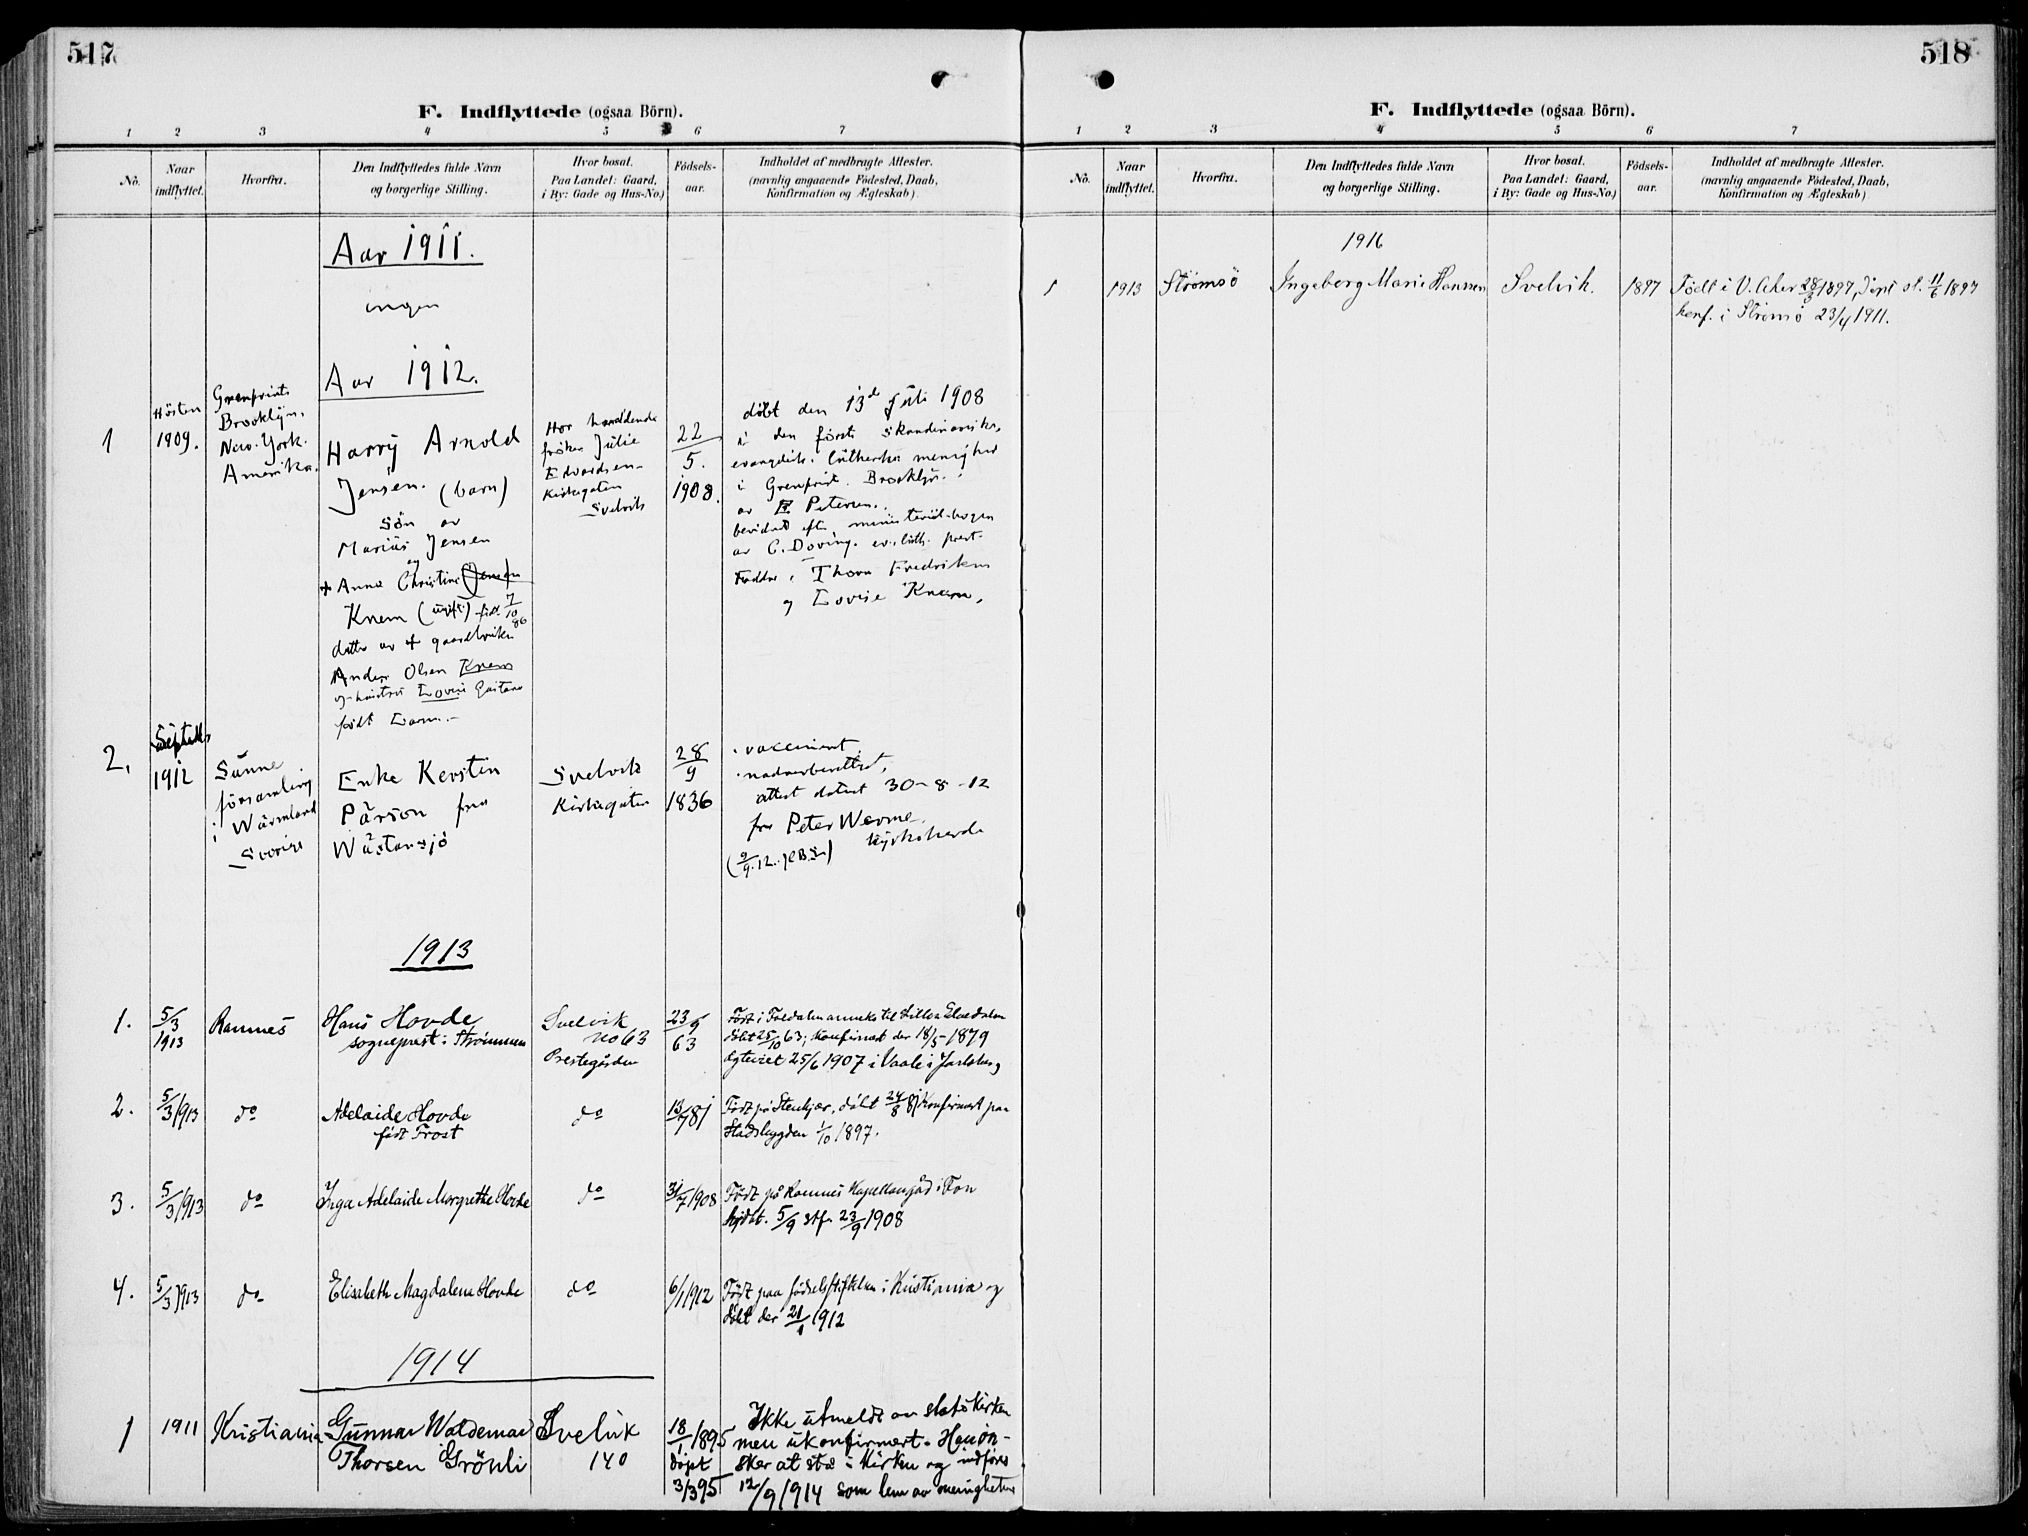 517
F. Indflyttede (ogsaa Börn).
1 2 3 4 5 6 7
No. Naar indflyttet. Hvorfra. Den Indflyttedes fulde Navn og borgerlige Stilling. Hvor bosat. Paa Landet: Gaard, i By: Gade og Hus-No.) Födselsaar. Indholdet af medbragte Attester. (navnlig angaaende Födested, Daab, Konfirmation og Ægteskab)
Aar 1911.
ingen
Aar 1912.
1
Hösten
1909.
Grenpoint
Brooklyn.
New-York.
Amerika.
Harry Arnold
Jensen. (barn)
Sön av
Marius Jensen
og
+ Anna Christine Jensen
Knem (ugift) født 7/10 86
datter av + gaardbruker
Anders Olsen Knem
født
Hos
frøken Julie
Edvardsen
Kirkegaten
Svelvik
22
5.
1908.
døbt den 13de Juli 1908
i den første skandinaviske
evangelisk. lutherske menighed
i Grenpoint. Brooklyn.
av E. Petersen.
bevidnet efter ministerialbogen
av C. Doving. ev. luth. prest.
Faddere, Thora Fredriksen
og Lovise Knem.
2.
Septbr
1912
Sunne
församling
i Wärmland
Sverige
Enke Kerstin
Pärson fra
Wästansjö
Svelvik
Kirkegaten
28
9
1836
vaccinert
nadverberettiget,
attest datert 30-8-12
fra Peter Werme
kyrkoherde
1913
1.
5/3
1913
Ramnes
Hans Hovde
sogneprest i Strømmen
Svelvik
No 63
Prestegården
23/9
63
Født i Foldalen anneks til Lille Elvedalen
døbt 25/10 63; konfirmert der 18/5-1879
Ægteviet 25/6 1907 i Vaale i Jarlsberg
2.
5/3 1913
do
Adelaide Hovde
født Frost
do
13/7 81
Født på Stenkjær, døbt 24/8 81 Konfirmert paa
Stadsbygden 1/10 1897.
3.
5/3 1913
do
Inga Adelaide Margrethe Hovde
do
31/7 1908
Født på Ramnes Kapellangård i Fon
hjdøbt. 5/9 stf. 23/9 1908
4.
5/3 1913
do
Elisabeth Magdalena Hovde
do
6/1 1912
Født paa fødselsstiftelsen i Kristiania og
døbt der 21/1 1912
1914
1
1911
Kristiania
Gunnar Waldemar
Thorsen Grönli
Svelvik
140
18/1 1895
døpt
3/3 95
Ikke utmeldt av statskirken
men ukonfirmert. Han øn-
sker at stå i kirken og indføres
12/9 1914 som lem av menigheten
518
F. Indflyttede (ogsaa Börn).
1 2 3 4 5 6 7
No. Naar indflyttet. Hvorfra. Den Indflyttedes fulde Navn og borgerlige Stilling. Hvor bosat. Paa Landet: Gaard, i By: Gade og Hus-No.) Födselsaar. Indholdet af medbragte Attester. (navnlig angaaende Födested, Daab, Konfirmation og Ægteskab)
1916
1 1913 Strömsö Ingeborg Marie Hansen Svelvik. 1897 Født i V. Aker 28/3 1897, døpt st. 11/6 1897
konf. i Strömsö 23/4 1911.